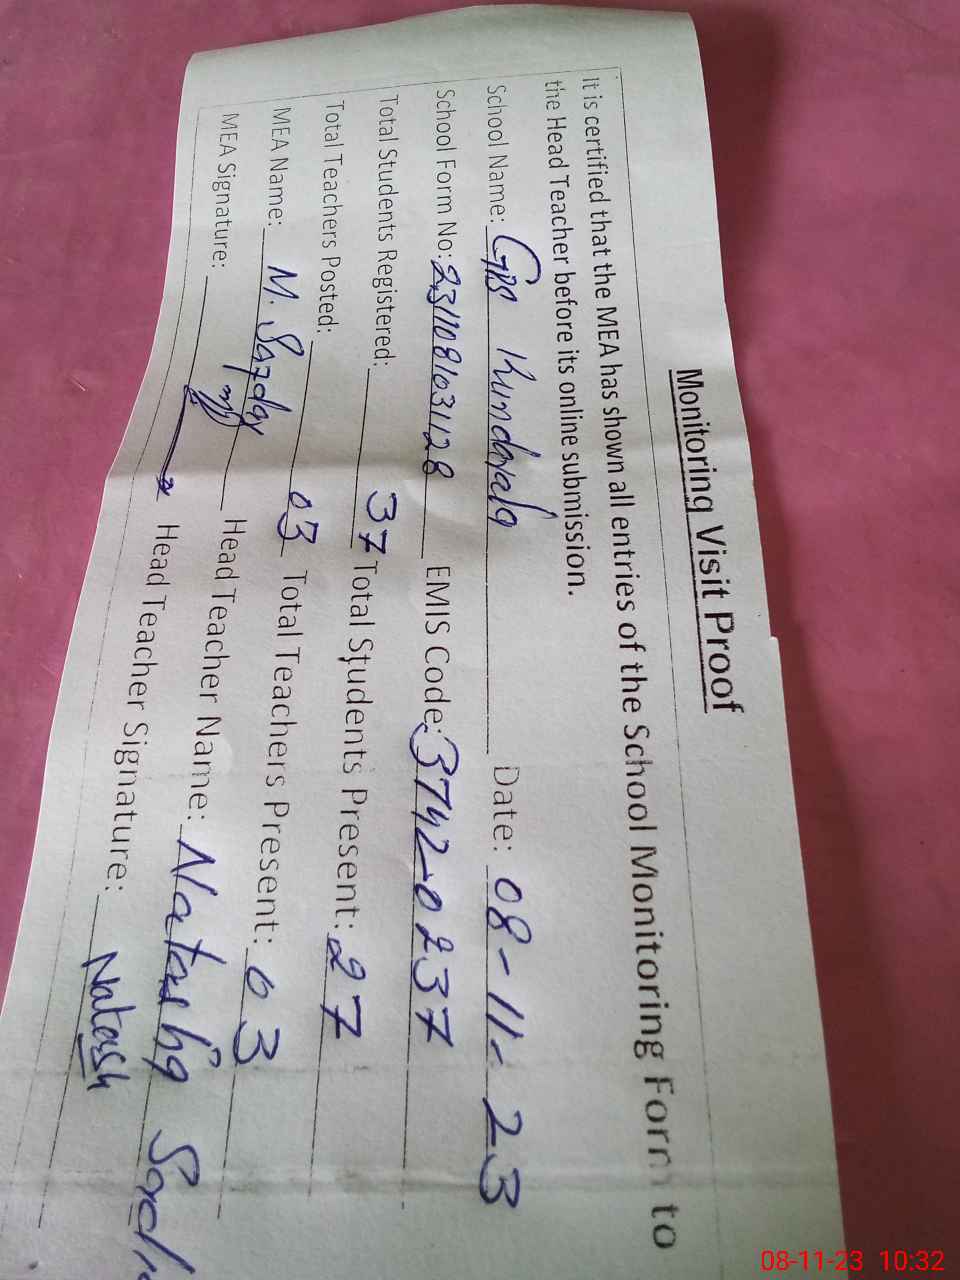 Monitoring Visit Proof
It is certified that the MEA has shown all entries of the School Monitoring Form to
the Head Teacher before its online submission.
School Name: GPS Kundayala Date: 08-11-23
School Form No: 2311081031128 EMIS Code: 37420237
Total Students Registered: 37 Total Students Present: 27
Total Teachers Posted: 03 Total Teachers Present: 03
MEA Name: M. Head Teacher Name: Natasha
MEA Signature: Head Teacher Signature: Natash
08-11-23 10:32